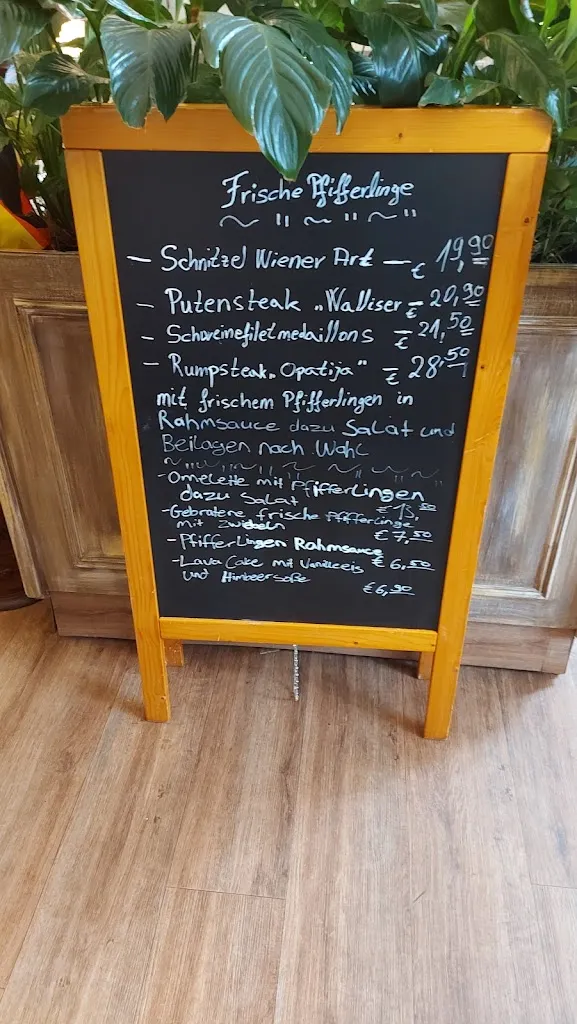 Frische Pfifferlinge
~ " ~ " ~ "
— Schnitzel Wiener Art — € 19,90
— Putensteak „Walliser — € 20,90
— Schweinefiletmedaillons — € 21,50
— Rumpsteak „Opatija" — € 28,50
mit frischem Pfifferlingen in
Rahmsauce dazu Salat und
Beilagen nach Wahl
- Omelette mit Pfifferlingen
dazu Salat
- Gebratene frische Pfifferlinge
mit Zwiebeln € 7,50
- Pfifferlingen Rahmsauce
€ 6,50
- Lava Cake mit Vanilleeis
und Himbeersoße
€ 6,90